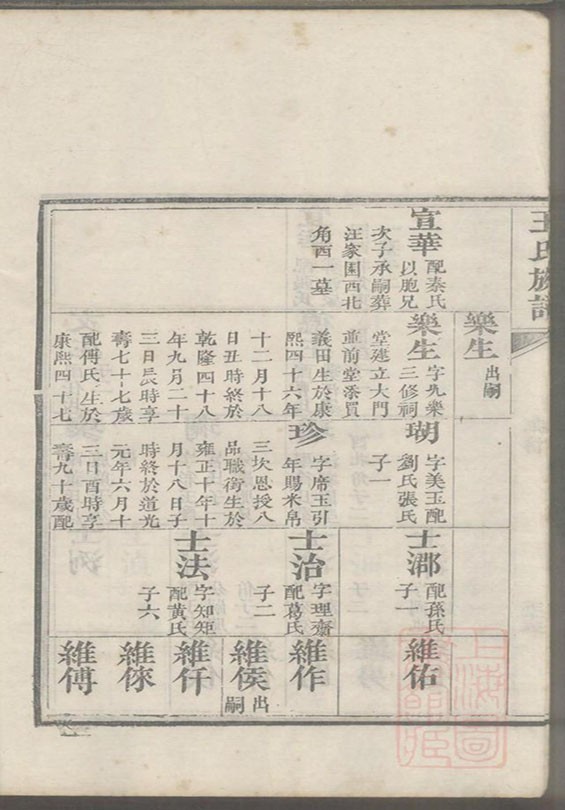 王氏族譜
宣華
配秦氏
以胞兄
次子承嗣葬
汪家園西北
角酉一墓
樂生
出嗣
樂生
字九衆
三修祠
堂建立大門
並前堂添買
義田生於康
熙四十六年
十二月十八
日丑時終於
乾隆四十八
年九月二十
三日辰時享
壽七十七歲
配傅氏生於
康熙四十七
瑚
字美玉配
劉氏張氏
子一
珍
字席玉引
年賜米帛
三次恩授八
品職銜生於
雍正十年十
月十八日子
時終於道光
元年六月十
三日酉時享
壽九十歲配
士
配孫氏
子一
士治
字理齋
配葛氏
子二
士法
字知矩
配黃氏
子六
維佑
維作
維侯
出嗣
維仟
維俅
維傅